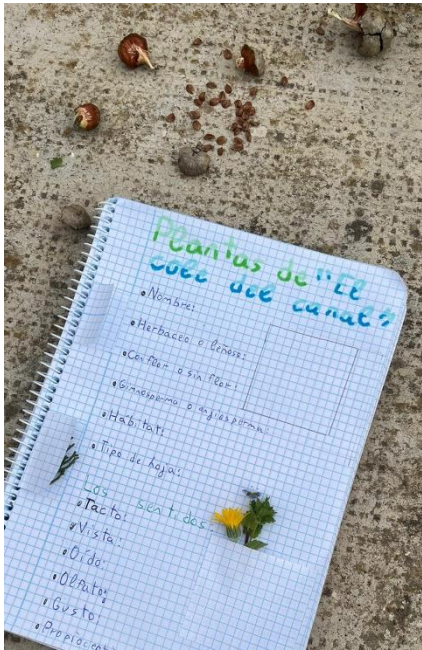 Plantas de "El
cole del canal"
• Nombre:
• Herbaceo o leñoso:
• Con flor o sin flor:
• Gimnosperma o angiosperma:
• Hábitat:
• Tipo de hoja:
Los sentidos:
• Tacto:
• Vista:
• Oído:
• Olfato:
• Gusto: